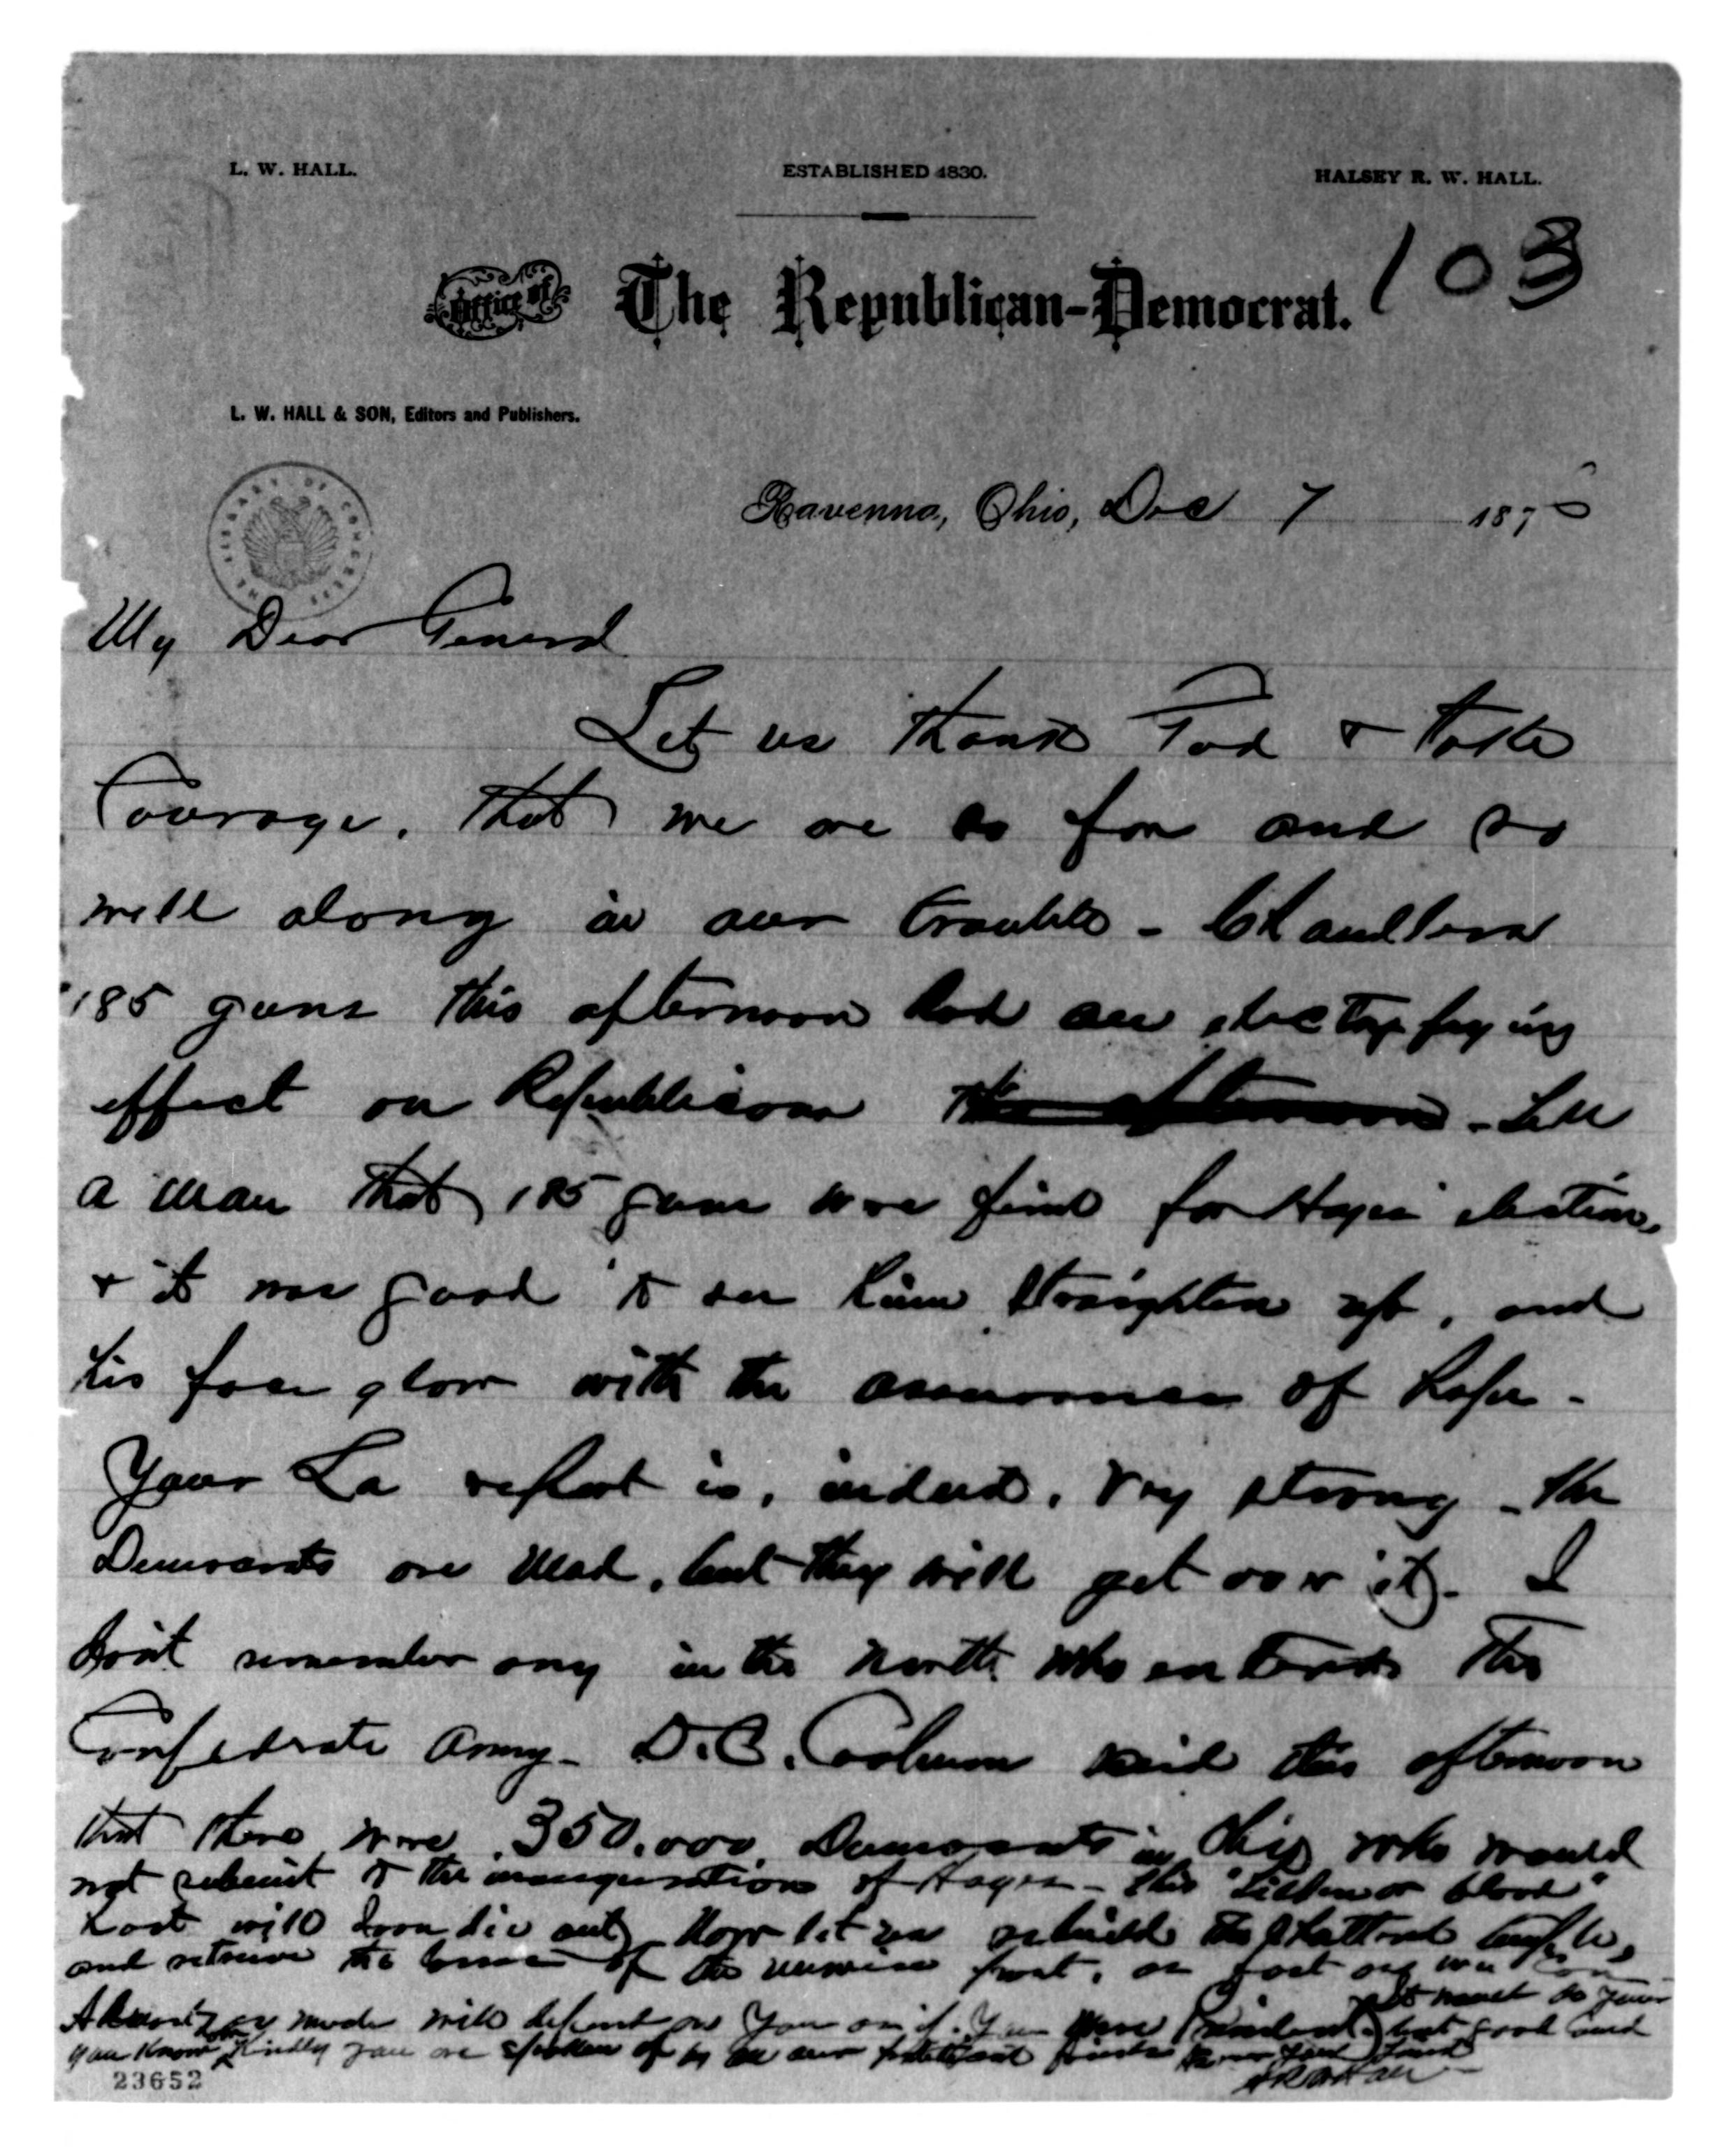 L. W. HALL.
ESTABLISHED 1830.
HALSEY R. W. HALL.
103
Office of The Republican-Democrat.
L. W. HALL & SON, Editors and Publishers.
THE LIBRARY OF CONGRESS
Ravenna, Ohio, Dec 7 1876
My Dear General
Let us thank God & take
Courage, that we are so far and so
well along in our trouble - Chandlers
185 guns this afternoon had an electryfying
effect on Republicans this afternoon - Tell
a man that 185 guns were fired for Hayes election,
& it was good to see him straighten up, and
his face glow with the assurance of hope -
Your La report is, indeed, very strong - The
Democrats are mad, but they will get over it - I
don't remember any in the north who entered the
Confederate Army - D.C. Coolman said this afternoon
that there were 350,000 Democrats in Ohio who would
not submit to the inauguration of Hayes - This "Tilden or blood"
will soon die out. Now let us rebuild the shattered temple,
and retrieve the losses of the past, as fast as we can
Almost as much will depend on you as if you were President
you know how kindly you are spoken of by all our friends